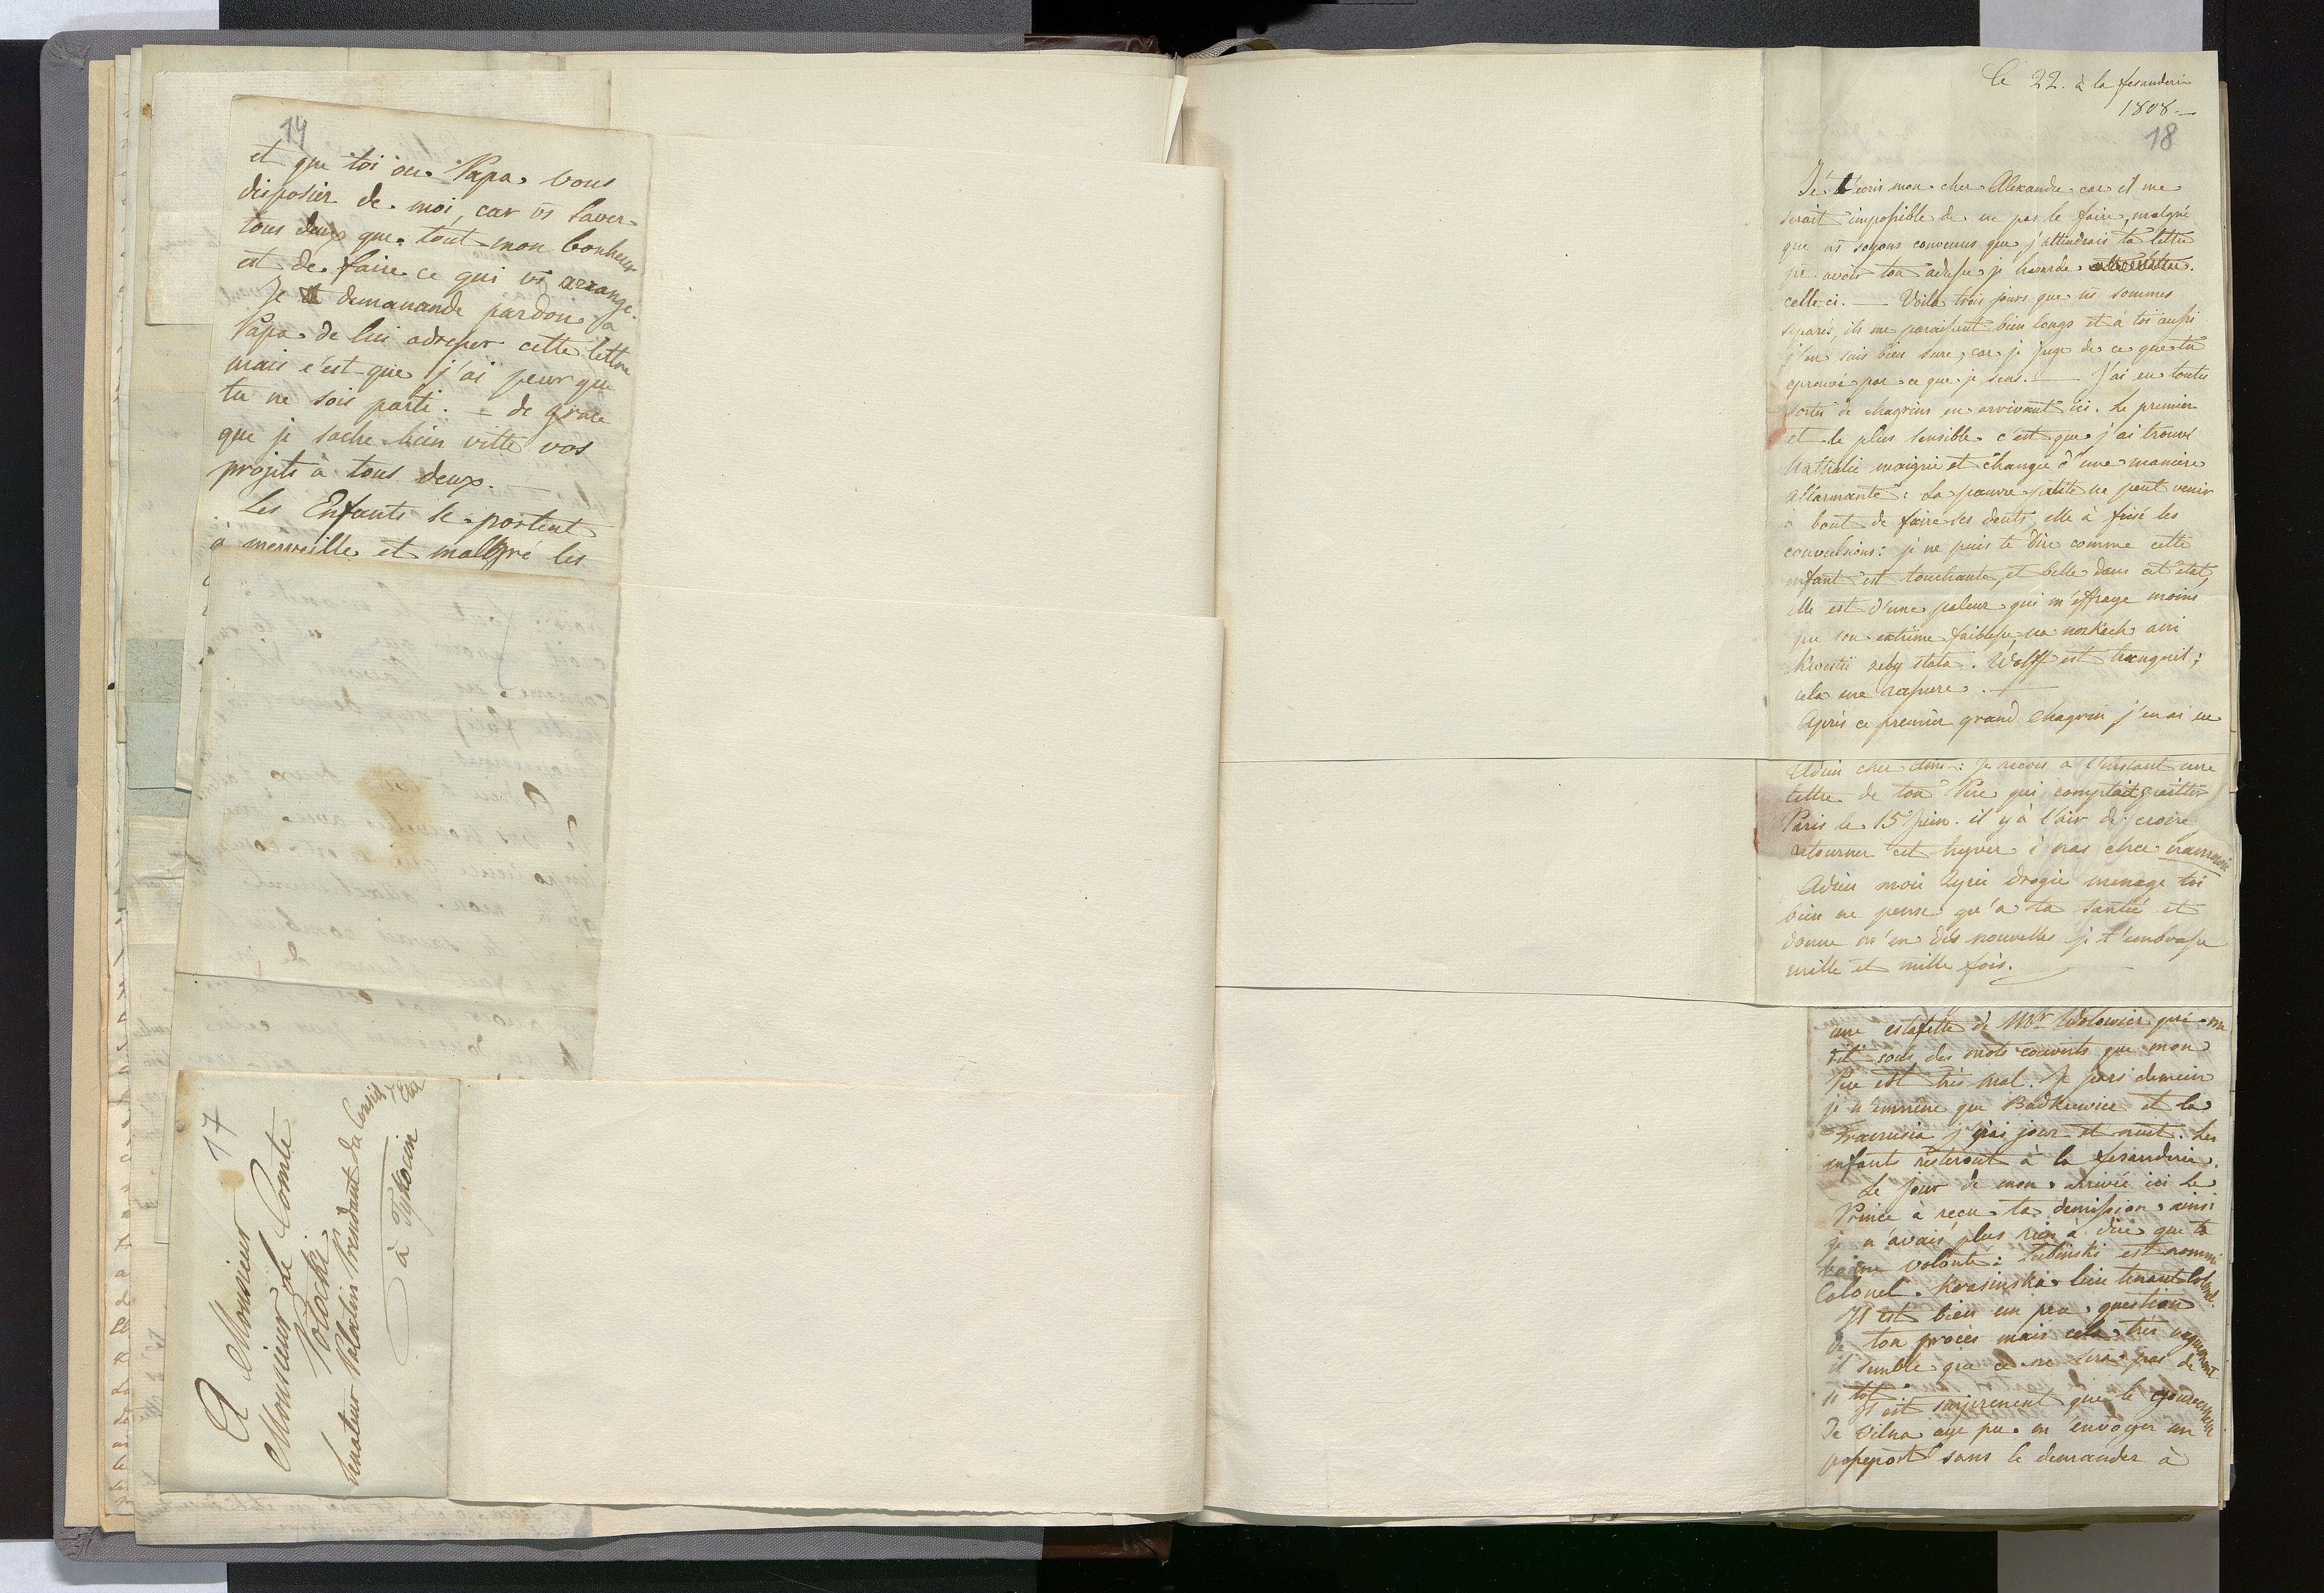 14
et que toi ou Papa vous
disposiez de moi, car vs savez
tous deux que tout mon bonheur
est de faire ce qui vs arrange.
Je demauande pardon a
Papa de lui adresser cette lettre
mais c'est que j'ai peur que
tu ne sois parti. — de grace
que je sache bien vitte vos
projets à tous deux. —
Les Enfants se portent
à merveille et malgré les
17
A Monsieur
Monsieur Le Comte
Potocki
Senateur Palatin President du Conseil d'Etat
à Tykocin
le 22. à la fesanderie
1808. —
18
Je t'ecris mon cher Alexandre car il me
serait impossible de ne pas le faire, malgré
que ns soyons convenus que j'attendrais ta lettre
pr avoir ton adresse je hasarde
celle ci. — Voila trois jours que ns sommes
separés, ils me paraissent bien longs et à toi aussi
j'en suis bien sure, car je juge de ce que tu
eprouve par ce que je sens. — J'ai eu toutes
sortes de chagrins en arrivant ici. Le premier
et le plus sensible c'est que j'ai trouvé
Nathalie maigrie et changée d'une maniere
allarmante: La pauvre petite ne peut venir
à bout de faire ses dents, elle à frisé les
convulsions: je ne puis te dire comme cette
enfant est touchante, et belle dans cet etat,
elle est d'une paleur qui m'effraye moins
que son extrême faiblesse, na nozkach ani
stata. Wolff est tranquil;
cela me rassure. —
Après ce premier grand chagrin j'en ai eu
Adieu cher Ami: je recois a l'instant une
lettre de ton Pere qui comptait quitter
Paris le 15 juin. il y à l'air de croire
retourner cet hyver i nas chce
Adieu moie zycie drogie menage toi
bien ne pense qu'a ta santé et
donne m'en des nouvelles je t'embrasse
mille et mille fois.
une estafette de Mr Wolowicz qui me
dit sous des mots couverts que mon
Pere est très mal. Je pars demain
je n'emmène que Badkiewicz et la
Franusia j'irai jour et nuit. Les
enfants resteront à la fesanderie.
Le jour de mon arrivée ici le
Prince à recu ta demission, ainsi
je n'avais plus rien à dire que ta
bonne volonté: Lubinski est nommé
Colonel. Krasinski lieutenant Colonel.
Il est bien un peu question
de ton procès mais cela très vaguement
il semble que ce ne sera pas de
si tôt.
Il est surprenent que le gouverneur
De Vilna aye pu m'envoyer un
passeport sans le demander à